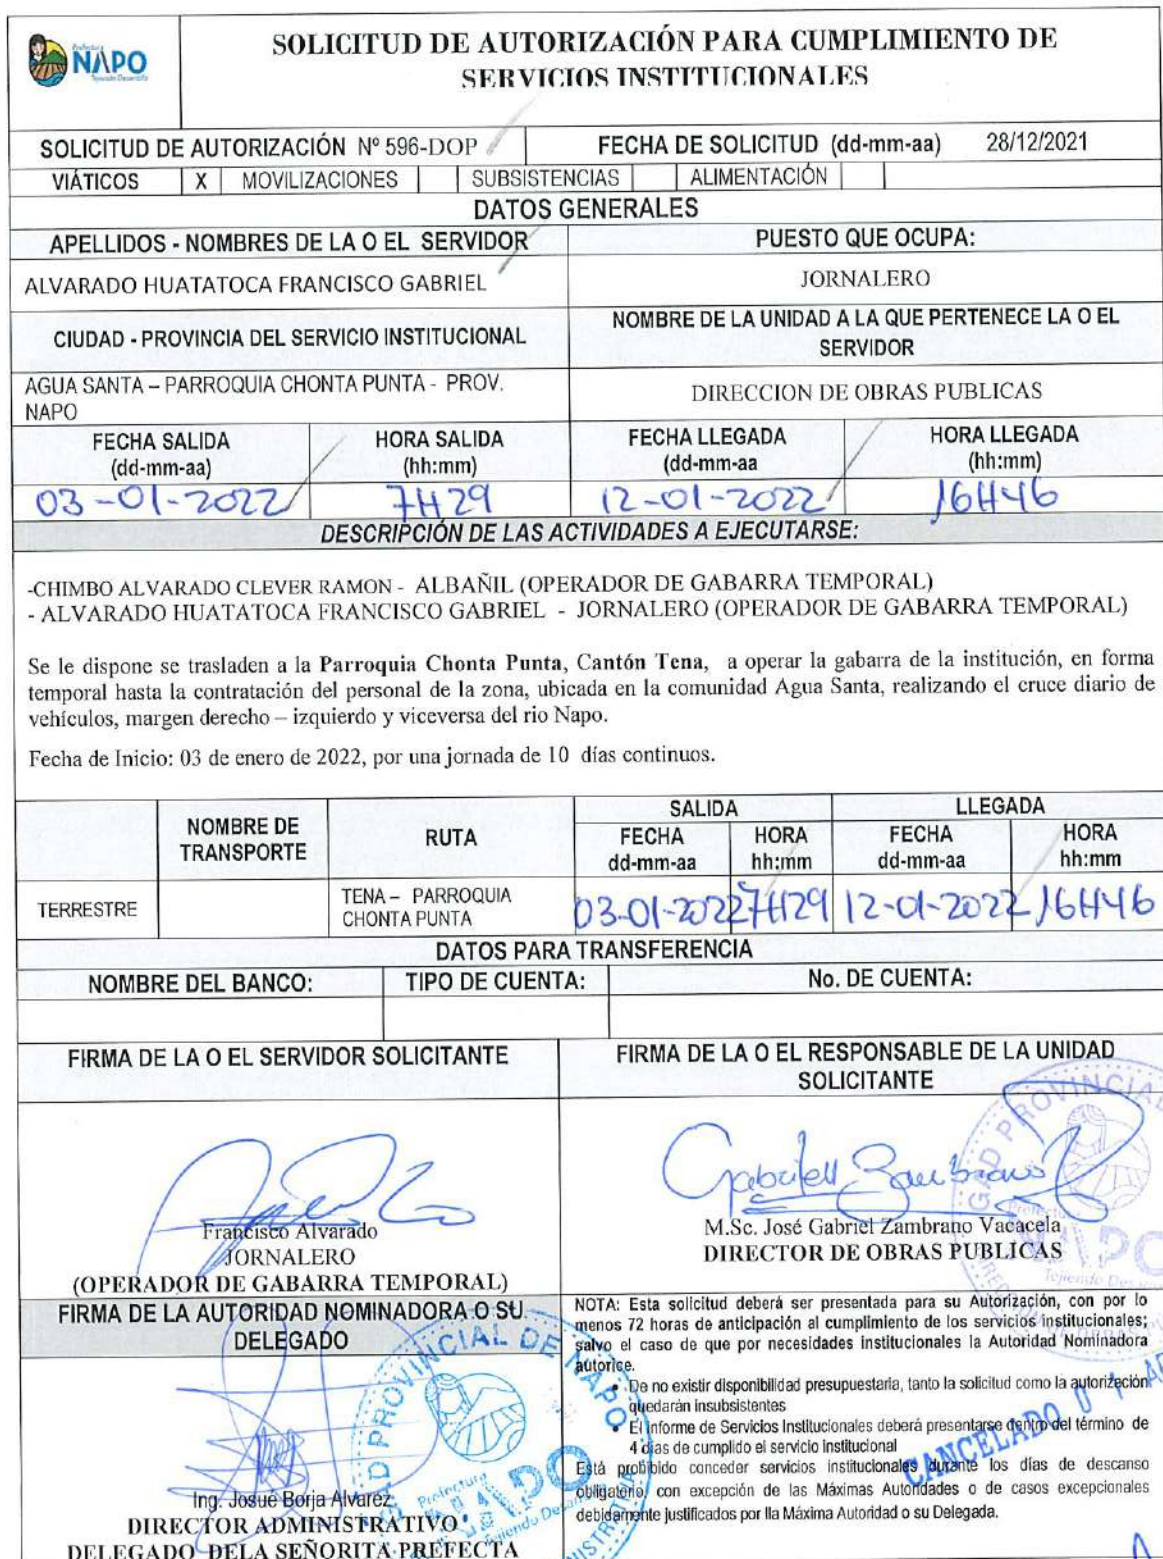 Prefectura
NAPO
Tejiendo Desarrollo
SOLICITUD DE AUTORIZACIÓN PARA CUMPLIMIENTO DE
SERVICIOS INSTITUCIONALES
SOLICITUD DE AUTORIZACIÓN Nº 596-DOP FECHA DE SOLICITUD (dd-mm-aa) 28/12/2021
VIÁTICOS X MOVILIZACIONES SUBSISTENCIAS ALIMENTACIÓN
DATOS GENERALES
APELLIDOS - NOMBRES DE LA O EL SERVIDOR PUESTO QUE OCUPA:
ALVARADO HUATATOCA FRANCISCO GABRIEL JORNALERO
CIUDAD - PROVINCIA DEL SERVICIO INSTITUCIONAL
NOMBRE DE LA UNIDAD A LA QUE PERTENECE LA O EL
SERVIDOR
AGUA SANTA – PARROQUIA CHONTA PUNTA - PROV.
NAPO
DIRECCION DE OBRAS PUBLICAS
FECHA SALIDA HORA SALIDA FECHA LLEGADA HORA LLEGADA
(dd-mm-aa) (hh:mm) (dd-mm-aa (hh:mm)
03-01-2022 7H29 12-01-2022 16H46
DESCRIPCIÓN DE LAS ACTIVIDADES A EJECUTARSE:
-CHIMBO ALVARADO CLEVER RAMON - ALBAÑIL (OPERADOR DE GABARRA TEMPORAL)
- ALVARADO HUATATOCA FRANCISCO GABRIEL - JORNALERO (OPERADOR DE GABARRA TEMPORAL)
Se le dispone se trasladen a la Parroquia Chonta Punta, Cantón Tena, a operar la gabarra de la institución, en forma
temporal hasta la contratación del personal de la zona, ubicada en la comunidad Agua Santa, realizando el cruce diario de
vehículos, margen derecho – izquierdo y viceversa del rio Napo.
Fecha de Inicio: 03 de enero de 2022, por una jornada de 10 días continuos.
SALIDA LLEGADA
NOMBRE DE
TRANSPORTE
RUTA
FECHA HORA FECHA HORA
dd-mm-aa hh:mm dd-mm-aa hh:mm
TERRESTRE
TENA – PARROQUIA
CHONTA PUNTA
03-01-2022 7H29 12-01-2022 16H46
DATOS PARA TRANSFERENCIA
NOMBRE DEL BANCO: TIPO DE CUENTA: No. DE CUENTA:
FIRMA DE LA O EL SERVIDOR SOLICITANTE
FIRMA DE LA O EL RESPONSABLE DE LA UNIDAD
SOLICITANTE
Gabriell Zambrano
GAD PROVINCIAL
Prefectura
NAPO
Tejiendo
Francisco Alvarado
JORNALERO
(OPERADOR DE GABARRA TEMPORAL)
M.Sc. José Gabriel Zambrano Vacacela
DIRECTOR DE OBRAS PUBLICAS
FIRMA DE LA AUTORIDAD NOMINADORA O SU
DELEGADO
GAD PROVINCIAL DE NAPO
Prefectura
NAPO
Tejiendo
Ing. Josue Borja Alvarez
DIRECTOR ADMINISTRATIVO
DELEGADO DELA SEÑORITA PREFECTA
NOTA: Esta solicitud deberá ser presentada para su Autorización, con por lo
menos 72 horas de anticipación al cumplimiento de los servicios institucionales;
salvo el caso de que por necesidades institucionales la Autoridad Nominadora
autorice.
• De no existir disponibilidad presupuestaria, tanto la solicitud como la autorización
quedarán insubsistentes
• El informe de Servicios Institucionales deberá presentarse dentro del término de
4 días de cumplido el servicio institucional
Está prohibido conceder servicios institucionales durante los días de descanso
obligatorio, con excepción de las Máximas Autoridades o de casos excepcionales
debidamente justificados por lla Máxima Autoridad o su Delegada.
CANCELADO 0 1